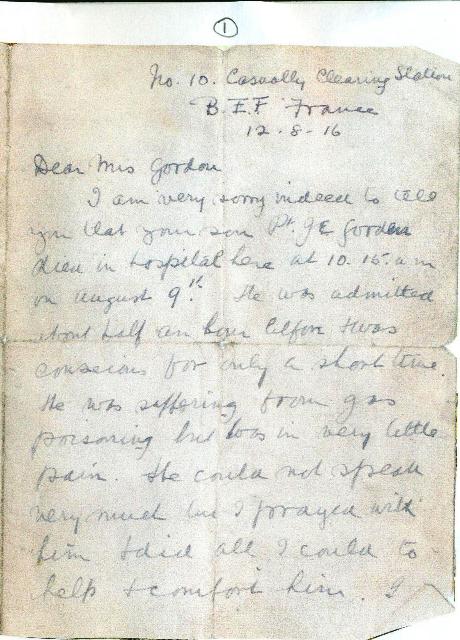 1
No. 10. Casualty Clearing Station
B.E.F France
12-8-16
Dear Mrs Gordon
I am very sorry indeed to tell
you that your son Pt. J E Gordon
died in hospital here at 10.15. am
on August 9th. He was admitted
about half an hour before & was
conscious for only a short time.
He was suffering from gas
poisoning but was in very little
pain. He could not speak
very much but I prayed with
him & did all I could to
help & comfort him. I